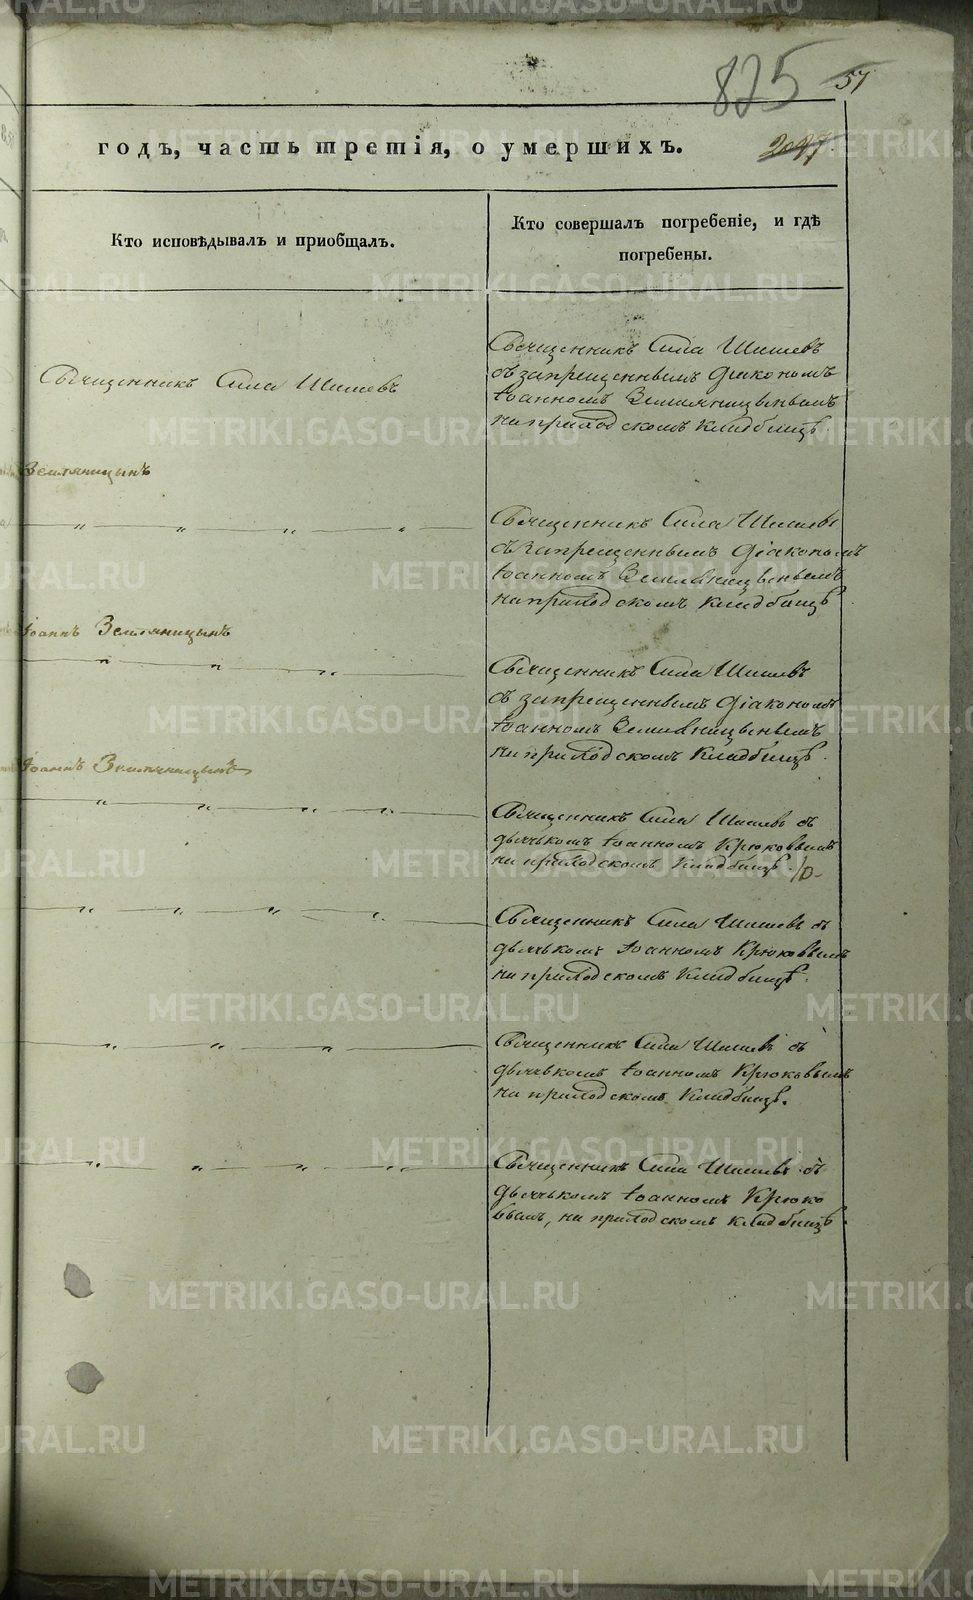 825
57
2027
годъ, часть третія, о умершихъ.
Кто исповѣдывалъ и приобщалъ.
Кто совершалъ погребеніе, и гдѣ
погребены.
Священникъ Сила Шишевъ
Священникъ Сила Шишевъ
съ запрещеннымъ Діакономъ
Іоанномъ Земляницынымъ
на приходскомъ кладбищѣ.
Земляницынъ
Священникъ Сила Шишевъ
съ запрещеннымъ Діакономъ
Іоанномъ Земляницынымъ
на приходскомъ кладбищѣ
Іоаннъ Земляницынъ
Священникъ Сила Шишевъ
съ запрещеннымъ Діакономъ
Іоанномъ Земляницынымъ
на приходскомъ кладбищѣ.
Іоаннъ Земляницынъ
Священникъ Сила Шишевъ съ
дьячькомъ Іоанномъ Крюковымъ
на приходскомъ кладбищѣ.
Священникъ Сила Шишевъ съ
дьячькомъ Іоанномъ Крюковымъ
на приходскомъ кладбищѣ.
Священникъ Сила Шишевъ съ
дьячькомъ Іоанномъ Крюковымъ
на приходскомъ кладбищѣ.
Священникъ Сила Шишевъ съ
дьячькомъ Іоанномъ Крюко
вымъ, на приходскомъ кладбищѣ.
METRIKI.GASO-URAL.RU